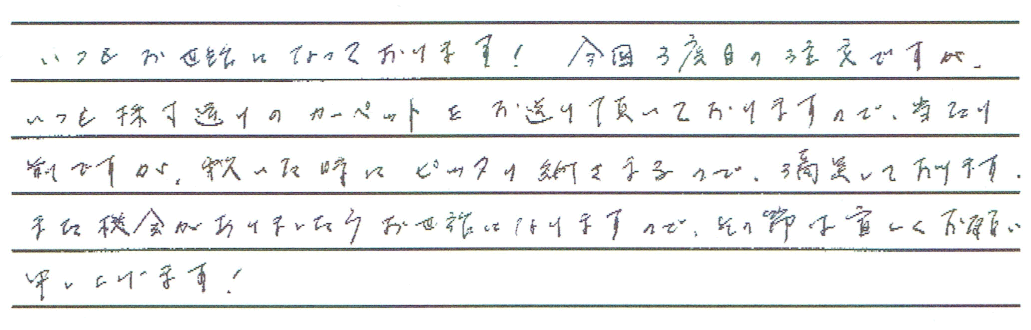 いつもお世話になっております！ 今回3度目の注文ですが、
いつも採寸通りのカーペットをお送り頂いておりますので、当たり
前ですが、敷いた時にピッタリ納さまるので、満足しております。
また機会がありましたらお世話になりますので、その節は宜しくお願い
申し上げます！